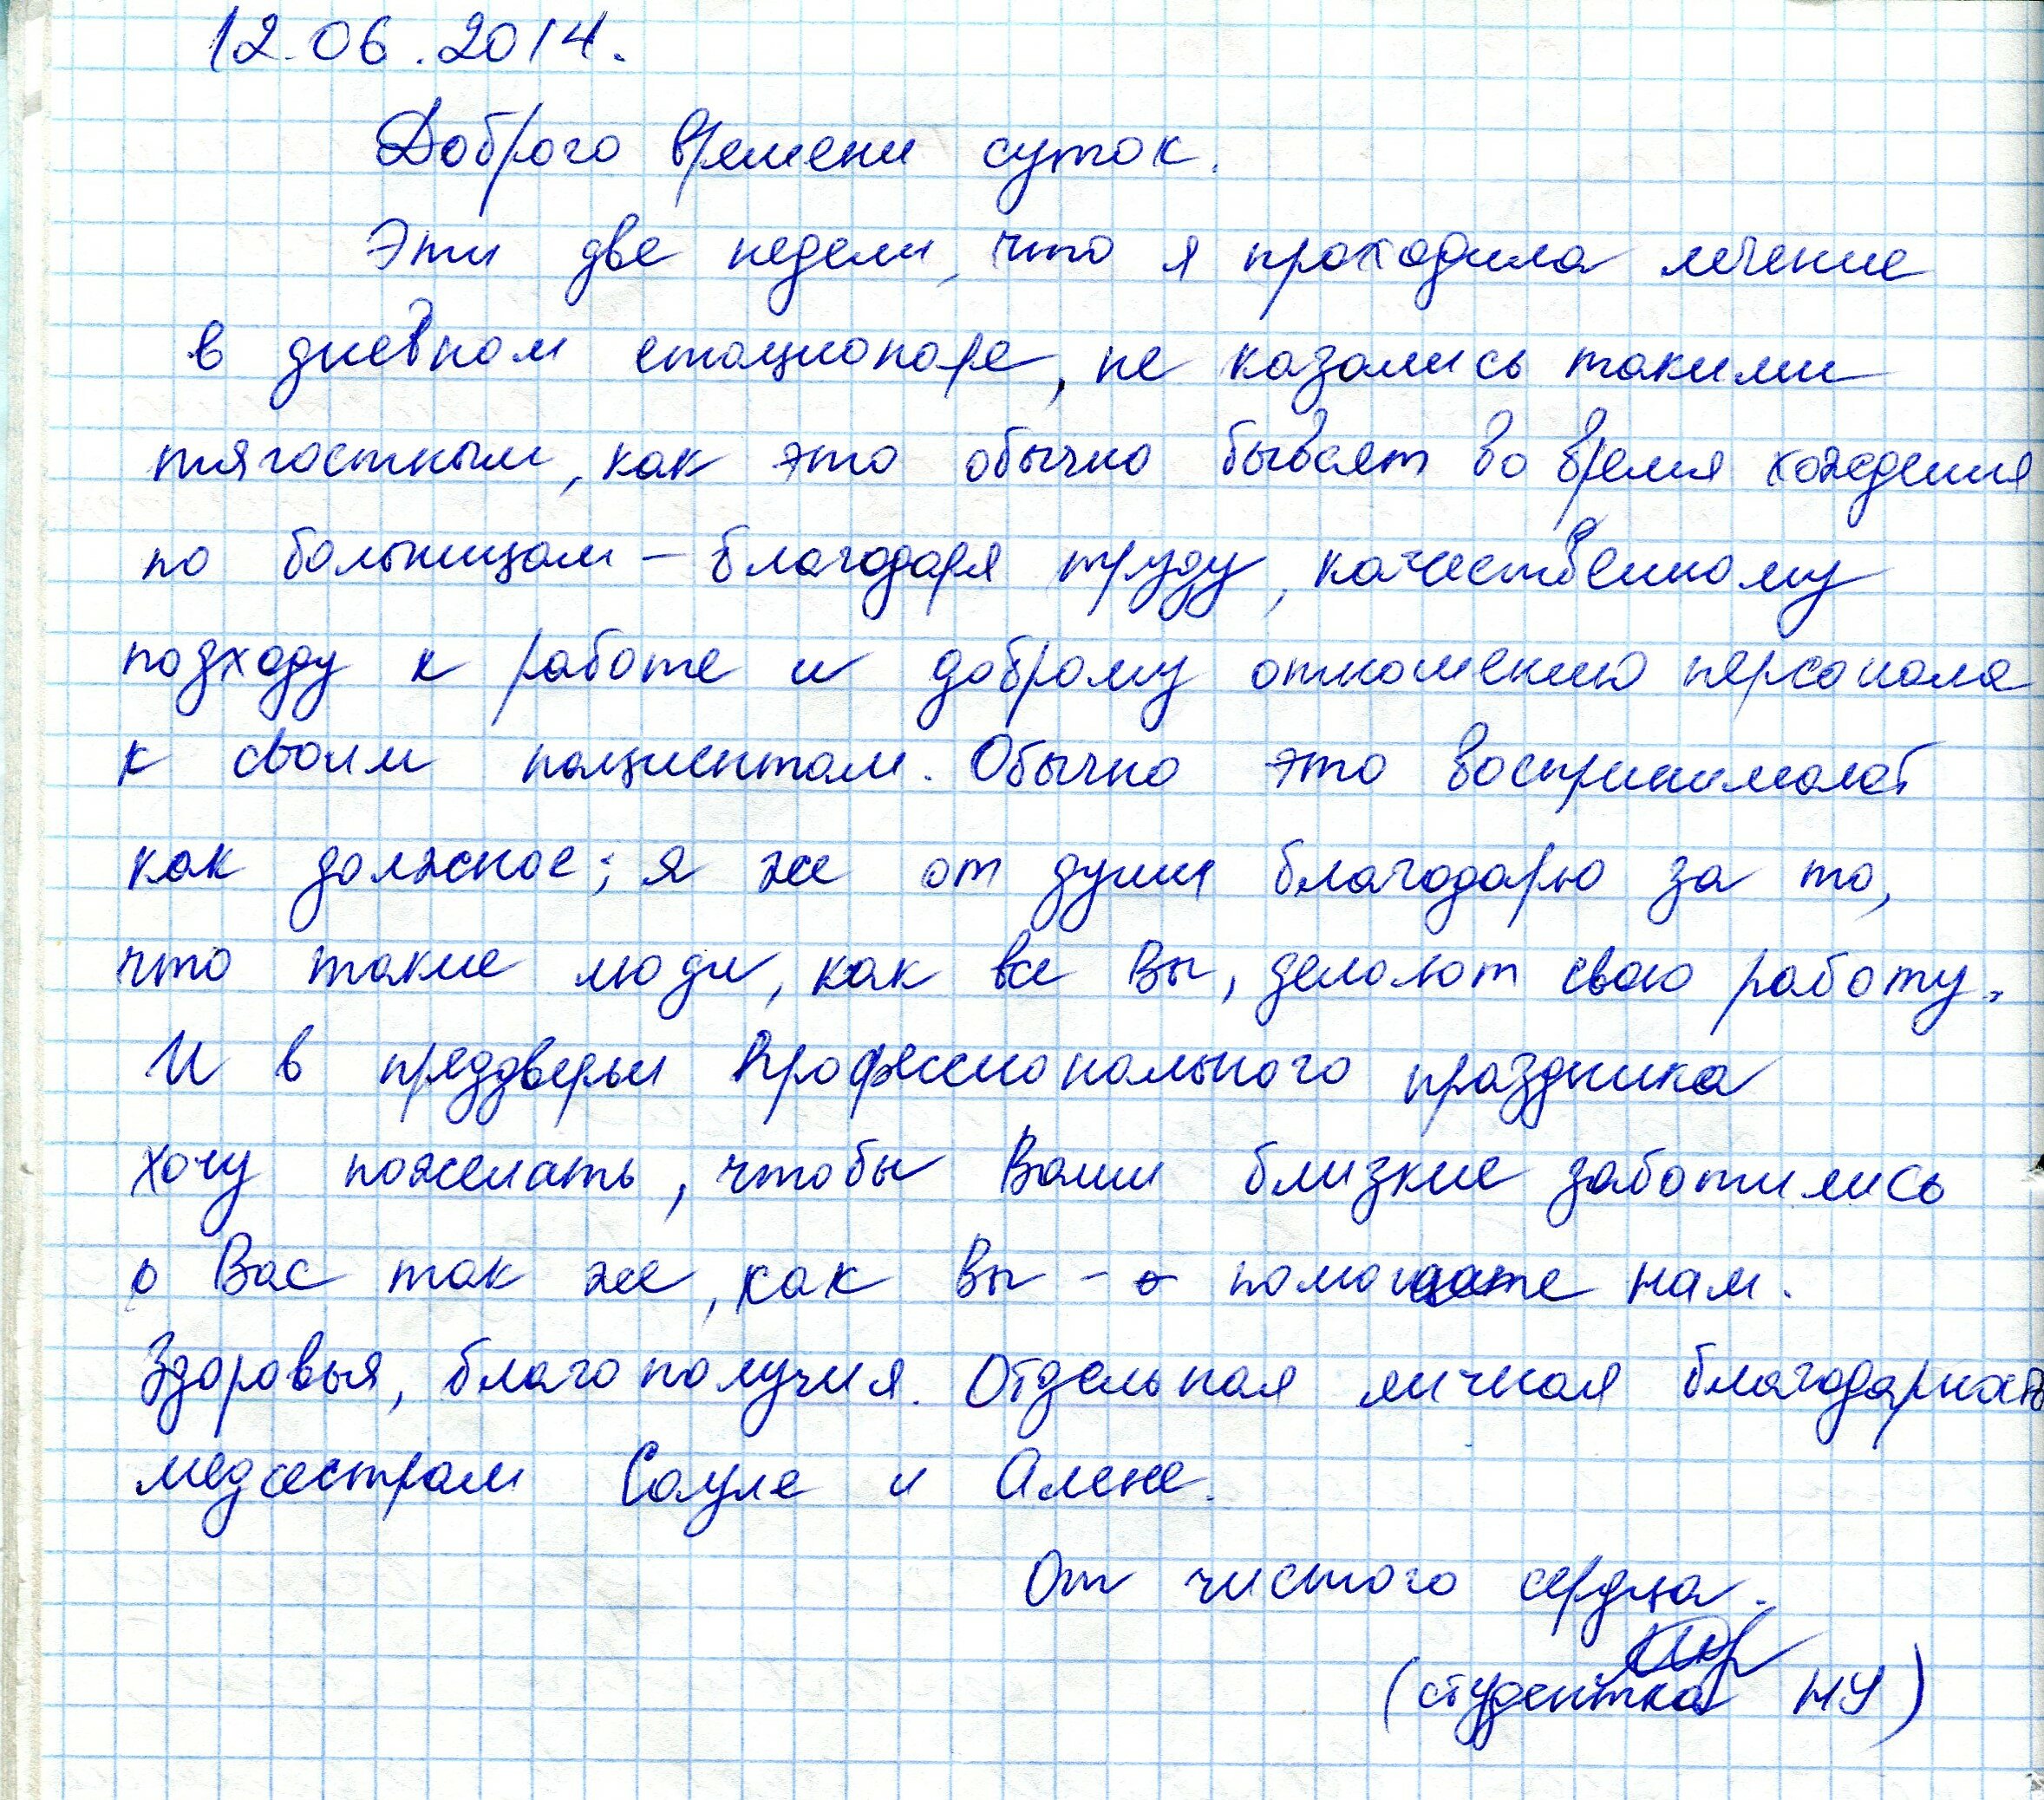 12.06.2014.
Доброго времени суток.
Эти две недели, что я проходила лечение
в дневном стационаре, не казались такими
тягостными, как это обычно бывает во время хождения
по больницам – благодаря труду, качественному
подходу к работе и доброму отношению персонала
к своим пациентам. Обычно это воспринимают
как должное; я же от души благодарю за то,
что такие люди, как все Вы, делают свою работу.
И в преддверьи Профессионального праздника
хочу пожелать, чтобы Ваши близкие заботились
о Вас так же, как Вы – помогаете нам.
Здоровья, благополучия. Отдельная личная благодарность
медсестрам Сауле и Алене.
От чистого сердца.
(студентка НУ)